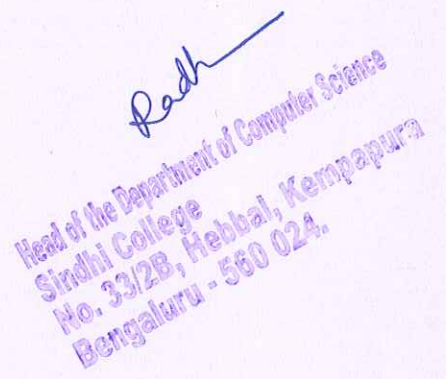 Radh
Head of the Department of Computer Science
Sindhi College
No. 33/2B, Hebbal, Kempapura
Bengaluru - 560 024.